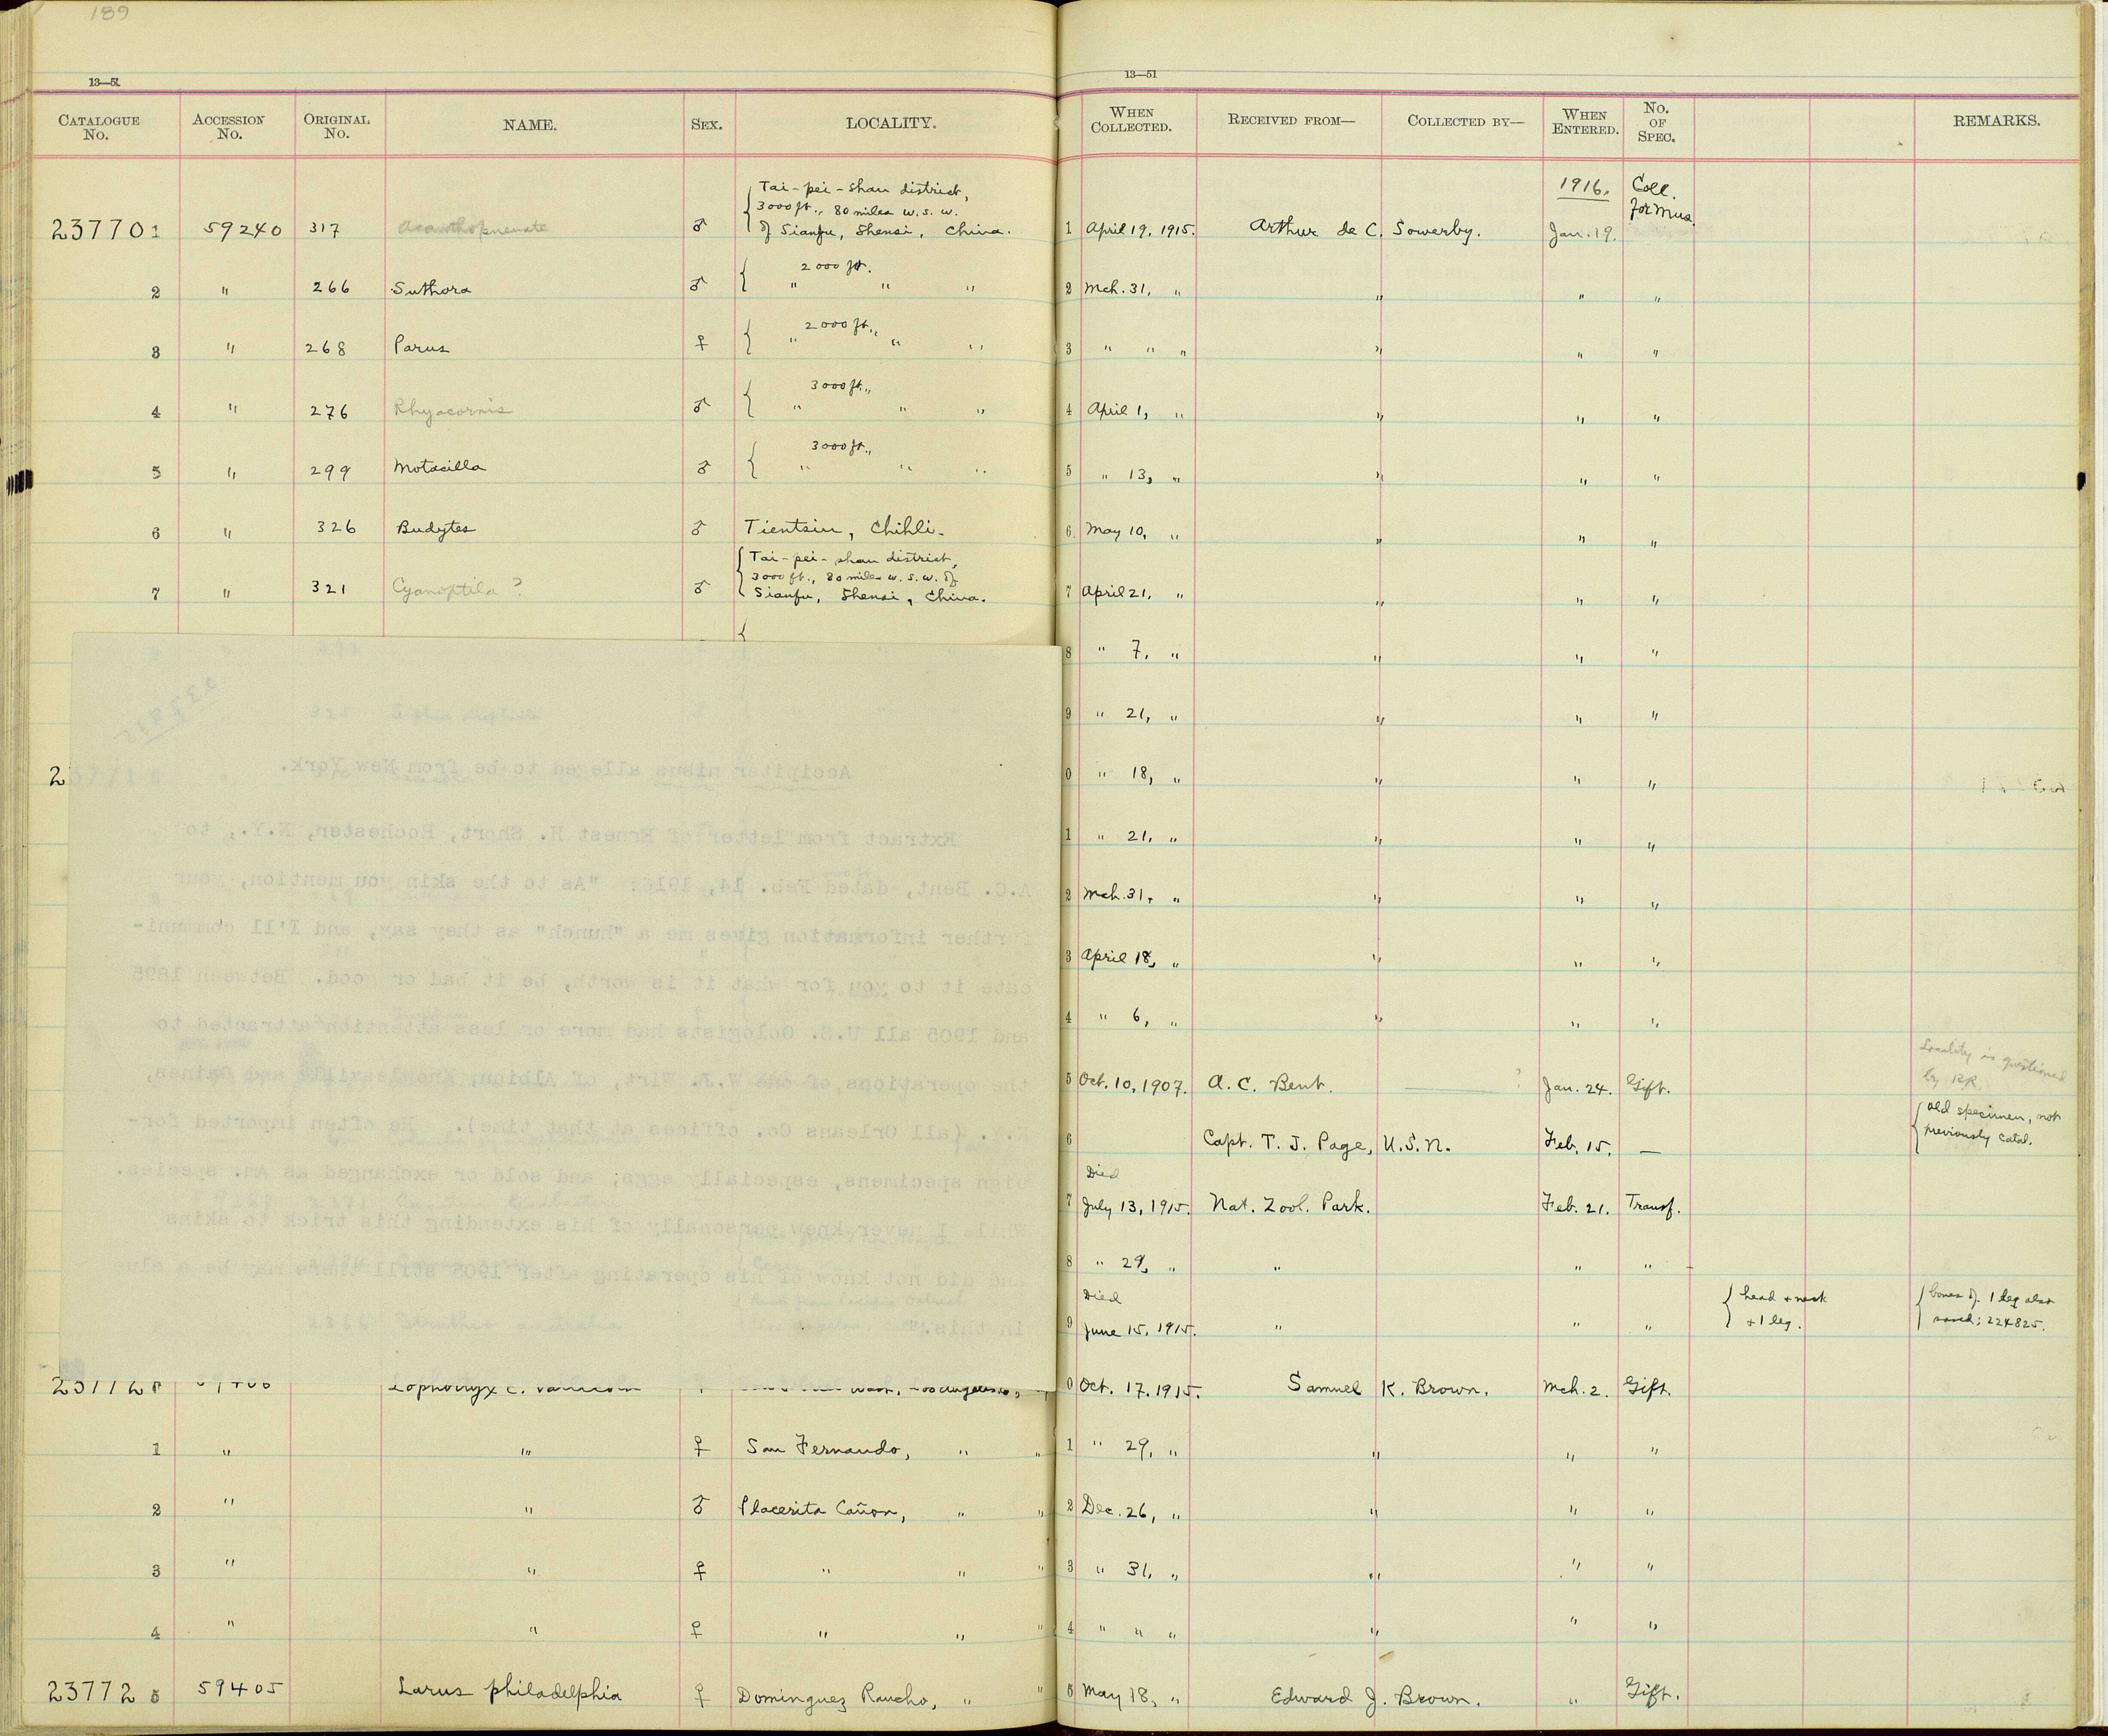 189
13—51
13—51
CATALOGUE No. ACCESSION No. ORIGINAL No. NAME. SEX. LOCALITY. WHEN COLLECTED. RECEIVED FROM— COLLECTED BY— WHEN ENTERED. No. OF SPEC. REMARKS.
Tai-pei-shan district, 1916. Coll.
3000 ft., 80 miles w. s. w. for Mus.
237701 59240 317 Acanthopneuste ♂ of Sianfu, Shensi, China. 1 April 19, 1915. Arthur de C. Sowerby. Jan. 19.
2000 ft.
2 " 266 Suthora ♂ " " " 2 Mch. 31, " " " "
2000 ft.,
3 " 268 Parus ♀ " " " 3 " " " " " "
3000 ft.,
4 " 276 Rhyacornis ♂ " " " 4 April 1, " " " "
3000 ft.,
5 " 299 Motacilla ♂ " " " 5 " 13, " " " "
6 " 326 Budytes ♂ Tientsin, Chihli. 6 May 10, " " " "
Tai-pei-shan district,
3000 ft., 80 miles w. s. w. of
7 " 321 Cyanoptila ? ♂ Sianfu, Shensi, China. 7 April 21, " " " "
8 " 7, " " " "
9 " 21, " " " "
2 0 " 18, " " " "
Accipiter nisus alleged to be from New York.
1 " 21, " " " "
Extract from letter of Ernest H. Short, Rochester, N.Y., to
A.C. Bent, dated Feb. 14, 1916: "As to the skin you mention, your
2 Mch. 31, " " " "
further information gives me a "hunch" as they say, and I'll communi-
3 April 18, " " " "
cate it to you for what it is worth, be it bad or good. Between 1895
4 " 6, " " " "
and 1905 all U.S. Oologists had more or less attention attracted to
Locality is questioned
by RR.
5 Oct. 10, 1907. A. C. Bent. ——— ? Jan. 24. Gift.
the operations, of one W.J. Wirt, of Albion, Knowlesville and Gaines,
old specimen, not
previously catal.
6 Capt. T. J. Page, U.S.N. Feb. 15. —
N.Y. (all Orleans Co. offices at that time). He often imported for-
eign specimens, especially eggs; and sold or exchanged as Am. species.
Died
7 July 13, 1915. Nat. Zool. Park. Feb. 21. Transf.
While I never knew personally of his extending this trick to skins
8 " 29, " " " "
and did not know of his operating after 1905 still there may be a clue
Died head + neck bones of 1 leg also
9 June 15, 1915. " " " + 1 leg. saved; 224825.
in this."
Lophortyx c. 0 Oct. 17, 1915. Samuel K. Brown. Mch. 2. Gift.
1 " " ♀ San Fernando, " " 1 " 29, " " " "
2 " " ♂ Placerita Cañon, " " 2 Dec. 26, " " " "
3 " " ♀ " " " 3 " 31, " " " "
4 " " ♀ " " " 4 " " " " " "
237725 59405 Larus philadelphia ♀ Dominguez Rancho, " " 5 May 18, " Edward J. Brown. " Gift.